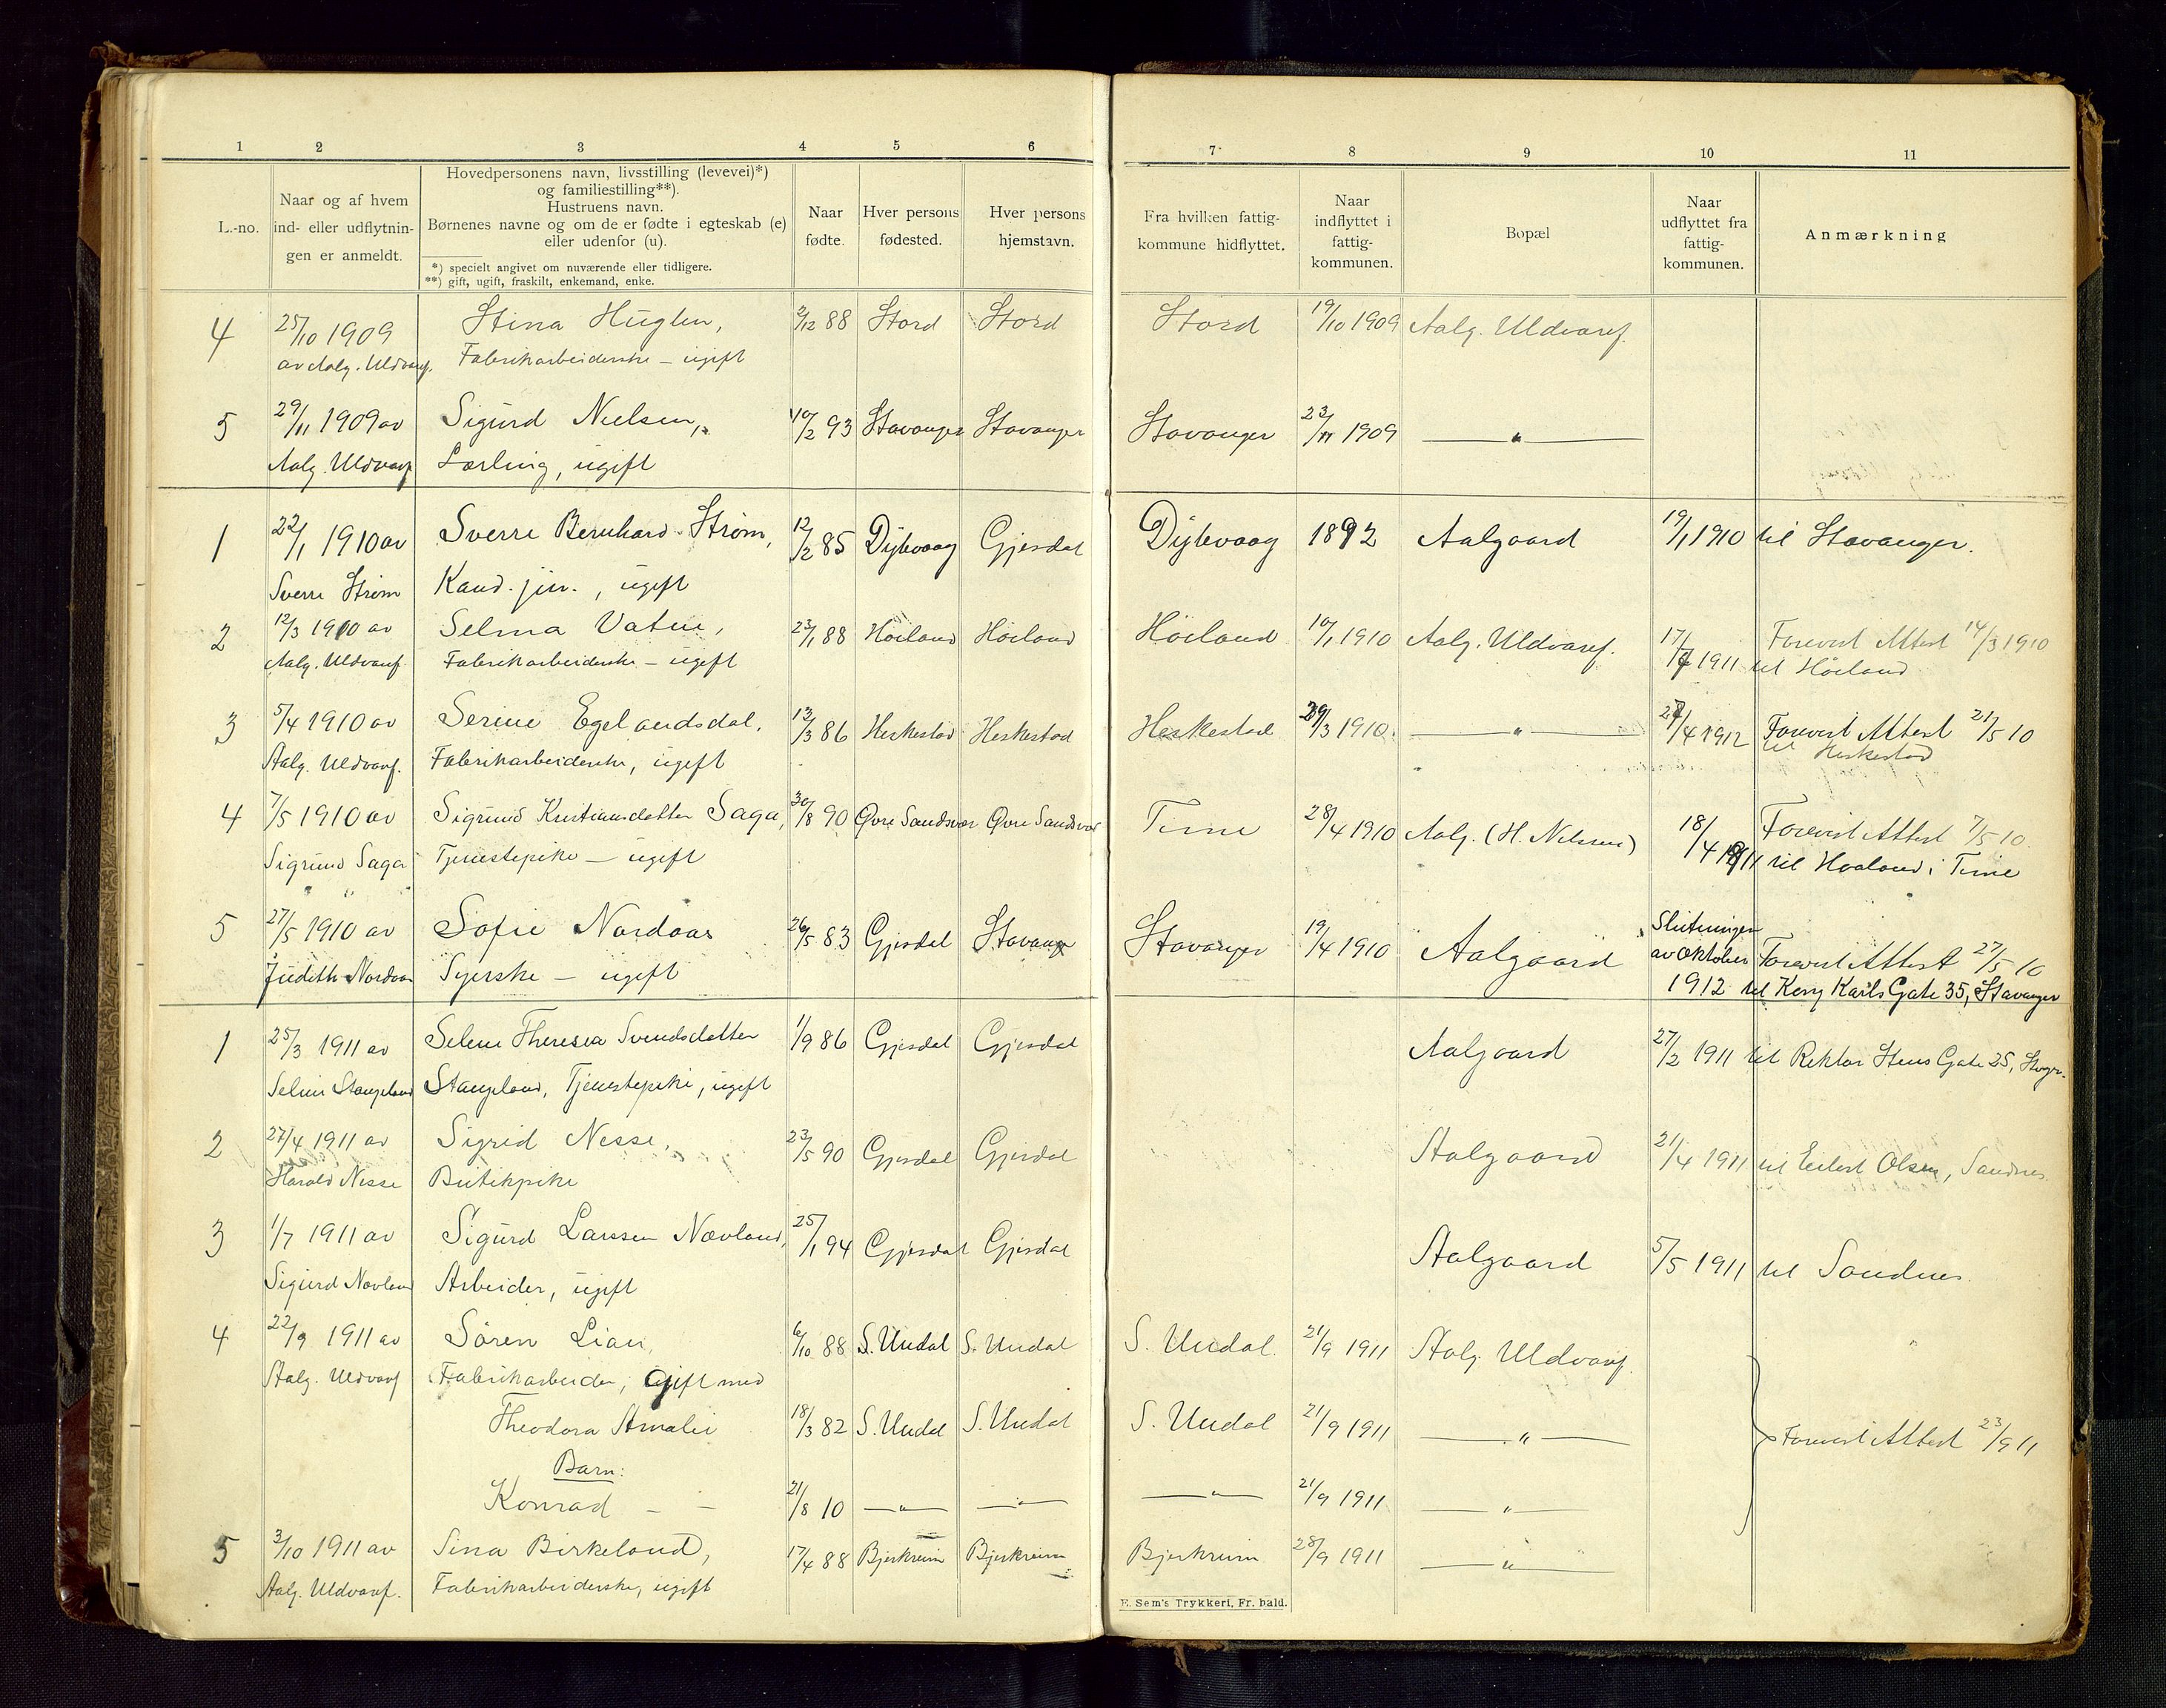 1 2 3 4 5 6
L.-no.
Naar og af hvem
ind- eller udflytnin-
gen er anmeldt.
Hovedpersonens navn, livsstilling (levevei)*)
og familiestilling**).
Hustruens navn.
Børnenes navne og om de er fødte i egteskab (e)
eller udenfor (u).
*) specielt angivet om nuværende eller tidligere.
**) gift, ugift, fraskilt, enkemand, enke.
Naar
fødte.
Hver persons
fødested.
Hver persons
hjemstavn.
7 8 9 10 11
Fra hvilken fattig-
kommune hidflyttet.
Naar
indflyttet i
fattig-
kommunen.
Bopæl
Naar
udflyttet fra
fattig-
kommunen.
Anmærkning
4 25/10 1909 Stina Huglen, 2/12 88 Stord Stord Stord 19/10 1909 Aalg. Uldvaref.
av Aalg. Uldvaref. Fabrikarbeiderske – ugift
5 29/11 1909 av Sigurd Nielsen, 10/2 93 Stavanger Stavanger Stavanger 23/11 1909 — " —
Aalg. Uldvaref Lærling, ugift
1 22/1 1910 av Sverre Bernhard Strøm, 12/2 85 Dybvaag Gjesdal Dybvaag 1892 Aalgaard 19/1 1910 til Stavanger.
Sverre Strøm Kand. jur., ugift
2 12/3 1910 av Selma Vatne, 23/1 88 Høiland Høiland Høiland 10/1 1910 Aalg. Uldvaref. 17/7 1911 Forevist Attest 14/3 1910
Aalg. Uldvaref. Fabrikarbeiderske – ugift til Høiland
3 5/4 1910 av Serine Egelandsdal, 13/3 86 Heskestad Heskestad Heskestad 29/3 1910. — " — 27/4 1912 Forevist Attest 21/5 10
Aalg. Uldvaref. Fabrikarbeiderske, ugift til Heskestad
4 7/5 1910 av Sigrund Kristiansdatter Saga, 30/8 90 Øvre Sandsvær Øvre Sandsvær Time 28/4 1910 Aalg. (H. Nelssen) 18/4 1911 Forevist Attest 7/5 10.
Sigrund Saga Tjenestepike – ugift til Haaland i Time
5 27/5 1910 av Sofie Nordaas 26/5 83 Gjesdal Stavanger Stavanger 19/4 1910 Aalgaard Slutningen
av Oktober Forevist Attest 27/5 10
Judith Nordaas Syerske – ugift 1912 til Kong Karls Gate 35, Stavanger
1 25/3 1911 av Selene Theresea Svendsdatter 1/9 86 Gjesdal Gjesdal Aalgaard 27/2 1911 til Rektor Stens Gate 25, Stvgr.
Selene Stangeland Stangeland, Tjenestepike, ugift
2 27/4 1911 av Sigrid Nesse, 23/5 90 Gjesdal Gjesdal Aalgaard 21/4 1911 til Eilert Olsen, Sandnes
Harald Nesse Butikpike
3 1/7 1911 av Sigurd Larssen Nævland, 25/1 94 Gjesdal Gjesdal Aalgaard 5/5 1911 til Sandnes
Sigurd Nævland Arbeider, ugift
4 22/9 1911 av Søren Lian, 6/10 88 S. Undal S. Undal S. Undal. 21/9 1911 Aalg. Uldvaref.
Aalg. Uldvaref Fabrikarbeider, Gift med
Theodora Amalie 18/3 82 S. Undal S. Undal S. Undal 21/9 1911 — " — Forevist Attest 23/9 11
Barn:
Konrad – – 21/8 10 — " — — " — — " — 21/9 1911 — " —
5 3/10 1911 av Sina Birkeland, 17/4 88 Bjerkreim Bjerkreim Bjerkreim 28/9 1911 — " —
Aalg. Uldvaref. Fabrikarbeiderske, ugift
E. Sem's Trykkeri, Fr. hald.